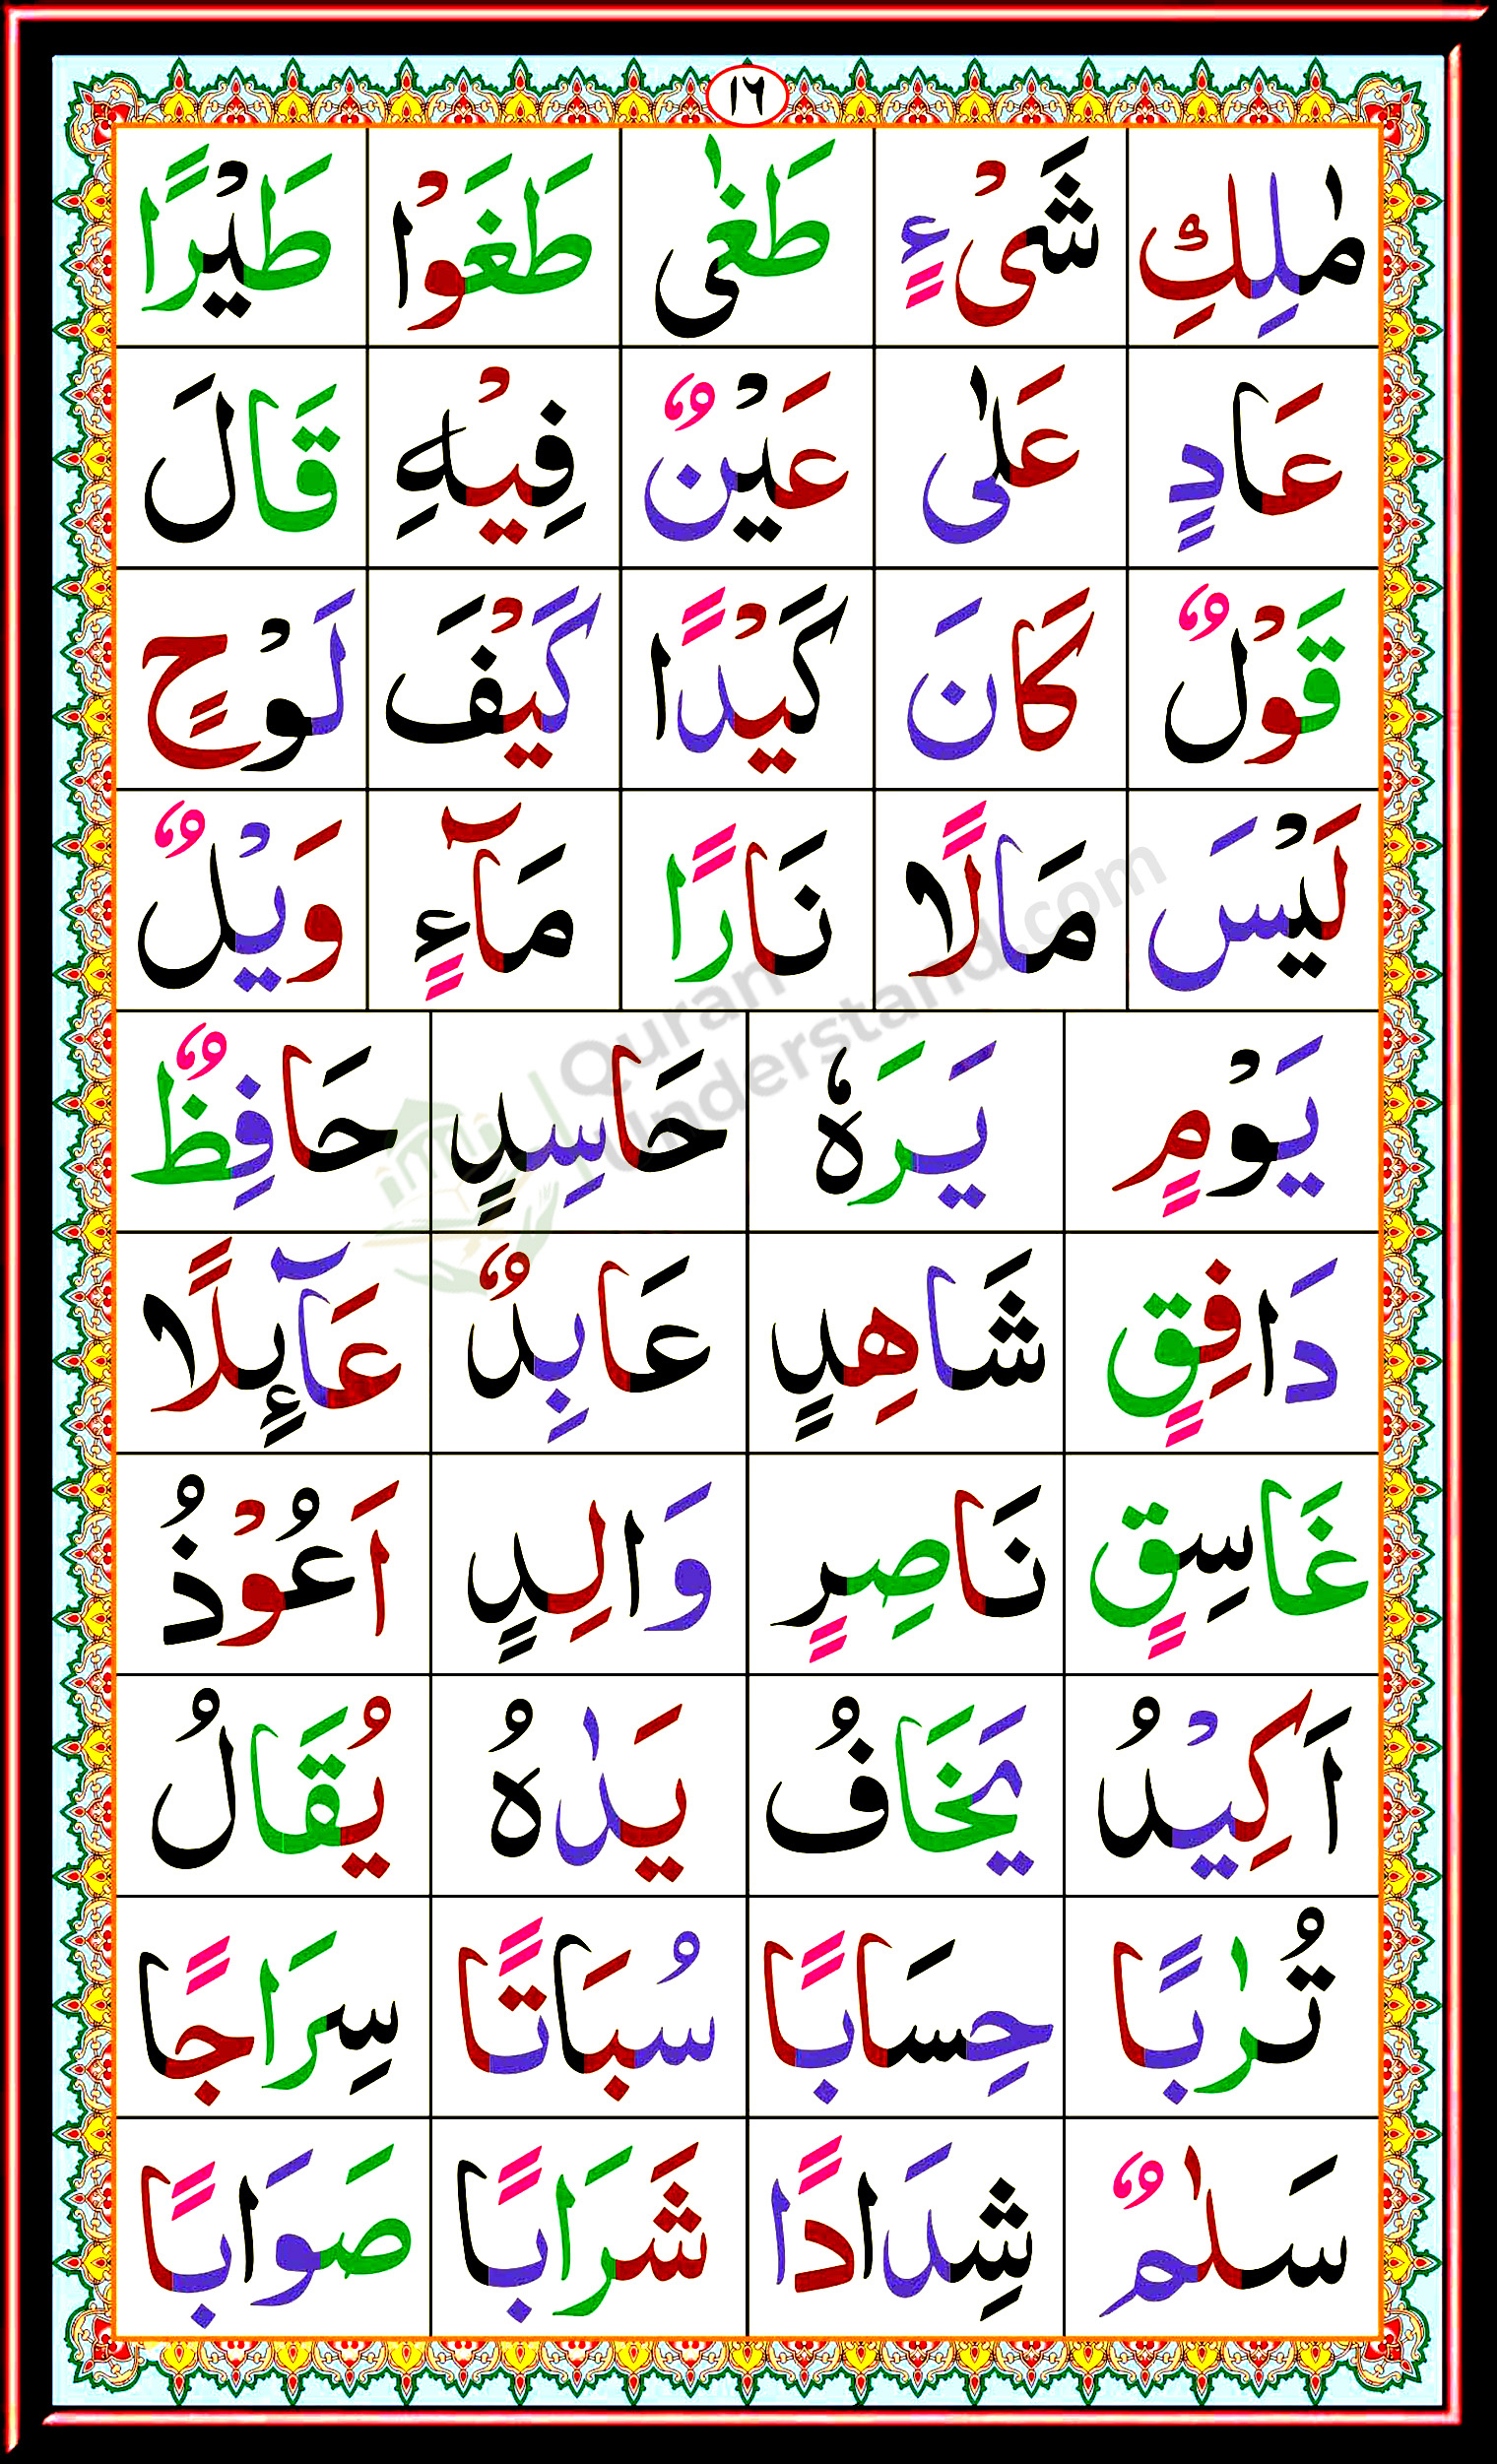 ١٦
مٰلِكِ شَیْءٍ طَغٰی طَغَوْا طَيْرًا
عَادٍ عَلٰی عَيْنٌ فِيْهِ قَالَ
قَوْلٌ كَانَ كَيْدًا كَيْفَ لَوْحٍ
لَيْسَ مَالًا نَارًا مَآءٍ وَيْلٌ
يَوْمٍ يَرَهٗ حَاسِدٍ حَافِظٌ
دَافِقٍ شَاهِدٍ عَابِدٌ عَآىِٕلًا
غَاسِقٍ نَاصِرٍ وَالِدٍ اَعُوْذُ
اَكِيْدُ يَخَافُ يَدٰهُ يُقَالُ
تُرٰبًا حِسَابًا سُبَاتًا سِرَاجًا
سَلٰمٌ شِدَادًا شَرَابًا صَوَابًا
Quran
Understand.com